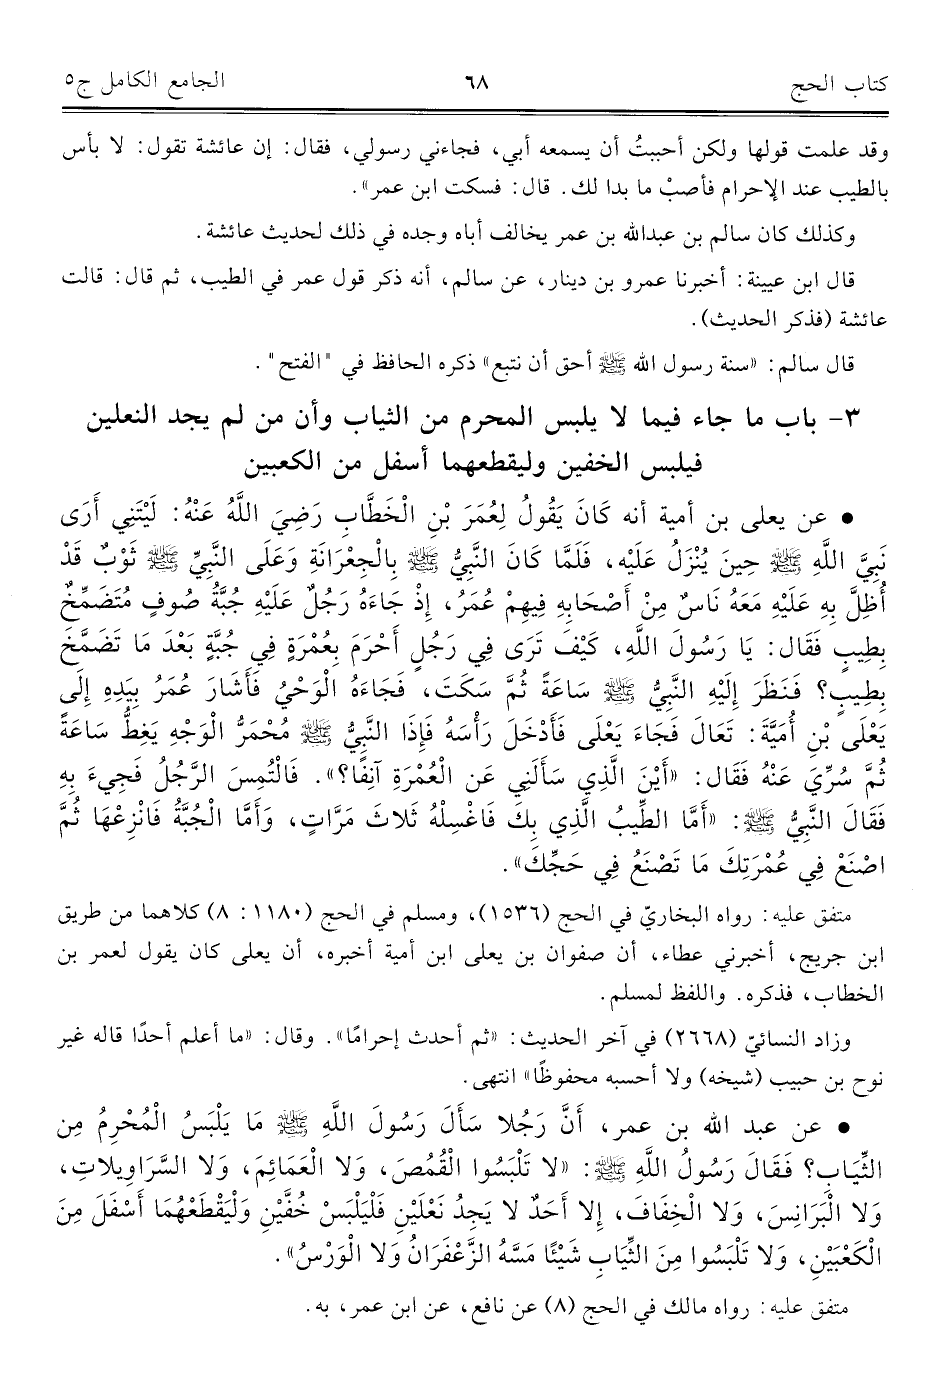 كتاب الحج ٦٨ الجامع الكامل ج٥
وقد علمت قولها ولكن أحببتُ أن يسمعه أبي، فجاءني رسولي، فقال: إن عائشة تقول: لا بأس
بالطيب عند الإحرام فأصبْ ما بدا لك. قال: فسكت ابن عمر».
وكذلك كان سالم بن عبدالله بن عمر يخالف أباه وجده في ذلك لحديث عائشة.
قال ابن عيينة: أخبرنا عمرو بن دينار، عن سالم، أنه ذكر قول عمر في الطيب، ثم قال: قالت
عائشة (فذكر الحديث).
قال سالم: «سنة رسول الله ﷺ أحق أن نتبع» ذكره الحافظ في "الفتح".
٣- باب ما جاء فيما لا يلبس المحرم من الثياب وأن من لم يجد النعلين
فيلبس الخفين وليقطعهما أسفل من الكعبين
● عن يعلى بن أمية أنه كَانَ يَقُولُ لِعُمَرَ بْنِ الْخَطَّابِ رَضِيَ اللَّهُ عَنْهُ: لَيْتَنِي أَرَى
نَبِيَّ اللَّهِ ﷺ حِينَ يُنْزَلُ عَلَيْه، فَلَمَّا كَانَ النَّبِيُّ ﷺ بِالْجِعْرَانَةِ وَعَلَى النَّبِيِّ ﷺ ثَوْبٌ قَدْ
أُظِلَّ بِهِ عَلَيْهِ مَعَهُ نَاسٌ مِنْ أَصْحَابِهِ فِيهِمْ عُمَرُ، إِذْ جَاءَهُ رَجُلٌ عَلَيْهِ جُبَّةُ صُوفٍ مُتَضَمِّخٌ
بِطِيبٍ فَقَالَ: يَا رَسُولَ اللَّهِ، كَيْفَ تَرَى فِي رَجُلٍ أَحْرَمَ بِعُمْرَةٍ فِي جُبَّةٍ بَعْدَ مَا تَضَمَّخَ
بِطِيبٍ؟ فَنَظَرَ إِلَيْهِ النَّبِيُّ ﷺ سَاعَةً ثُمَّ سَكَتَ، فَجَاءَهُ الْوَحْيُ فَأَشَارَ عُمَرُ بِيَدِهِ إِلَى
يَعْلَى بْنِ أُمَيَّةَ: تَعَالَ فَجَاءَ يَعْلَى فَأَدْخَلَ رَأْسَهُ فَإِذَا النَّبِيُّ ﷺ مُحْمَرُّ الْوَجْهِ يَغِطُّ سَاعَةً
ثُمَّ سُرِّيَ عَنْهُ فَقَالَ: «أَيْنَ الَّذِي سَأَلَنِي عَنِ الْعُمْرَةِ آنِفًا؟». فَالْتُمِسَ الرَّجُلُ فَجِيءَ بِهِ
فَقَالَ النَّبِيُّ ﷺ: «أَمَّا الطِّيبُ الَّذِي بِكَ فَاغْسِلْهُ ثَلاثَ مَرَّاتٍ، وَأَمَّا الْجُبَّةُ فَانْزِعْهَا ثُمَّ
اصْنَعْ فِي عُمْرَتِكَ مَا تَصْنَعُ فِي حَجِّكَ».
متفق عليه: رواه البخاريّ في الحج (١٥٣٦)، ومسلم في الحج (١١٨٠: ٨) كلاهما من طريق
ابن جريج، أخبرني عطاء، أن صفوان بن يعلى ابن أمية أخبره، أن يعلى كان يقول لعمر بن
الخطاب، فذكره. واللفظ لمسلم.
وزاد النسائيّ (٢٦٦٨) في آخر الحديث: «ثم أحدث إحرامًا». وقال: «ما أعلم أحدًا قاله غير
نوح بن حبيب (شيخه) ولا أحسبه محفوظًا» انتهى.
● عن عبد الله بن عمر، أَنَّ رَجُلا سَأَلَ رَسُولَ اللَّهِ ﷺ مَا يَلْبَسُ الْمُحْرِمُ مِن
الثِّيَاب؟ فَقَالَ رَسُولُ اللَّهِ ﷺ: «لا تَلْبَسُوا الْقُمُصَ، وَلا الْعَمَائِمَ، وَلا السَّرَاوِيلاتِ،
وَلا الْبَرَانِسَ، وَلا الْخِفَافَ، إِلا أَحَدٌ لا يَجِدُ نَعْلَيْنِ فَلْيَلْبَسْ خُفَّيْنِ وَلْيَقْطَعْهُمَا أَسْفَلَ مِنَ
الْكَعْبَيْنِ، وَلا تَلْبَسُوا مِنَ الثِّيَابِ شَيْئًا مَسَّهُ الزَّعْفَرَانُ وَلا الْوَرْسُ».
متفق عليه: رواه مالك في الحج (٨) عن نافع، عن ابن عمر، به.